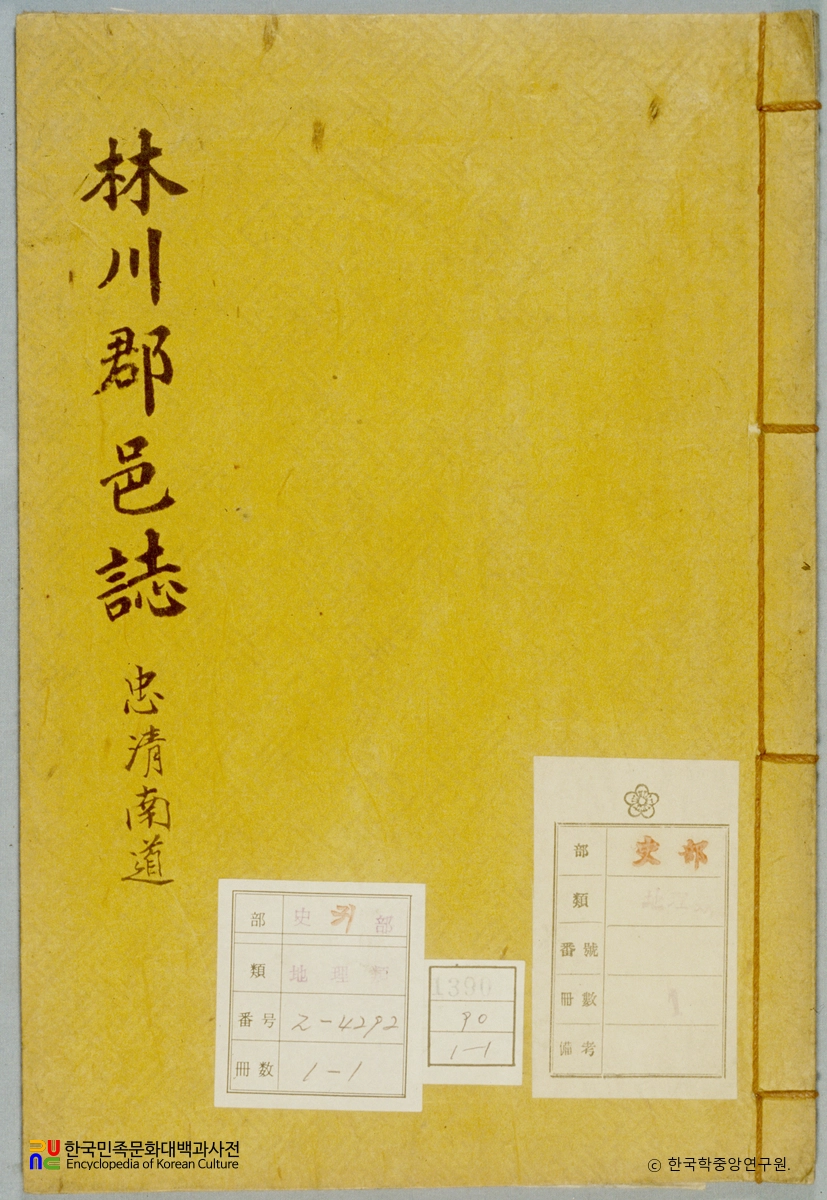 林川郡邑誌 忠清南道
部 史 部
類 地理類
番号 Z-4292
冊数 1-1
1390
90
1-1
部 史部
類
番號
冊數 1
備考
한국민족문화대백과사전
Encyclopedia of Korean Culture
© 한국학중앙연구원.